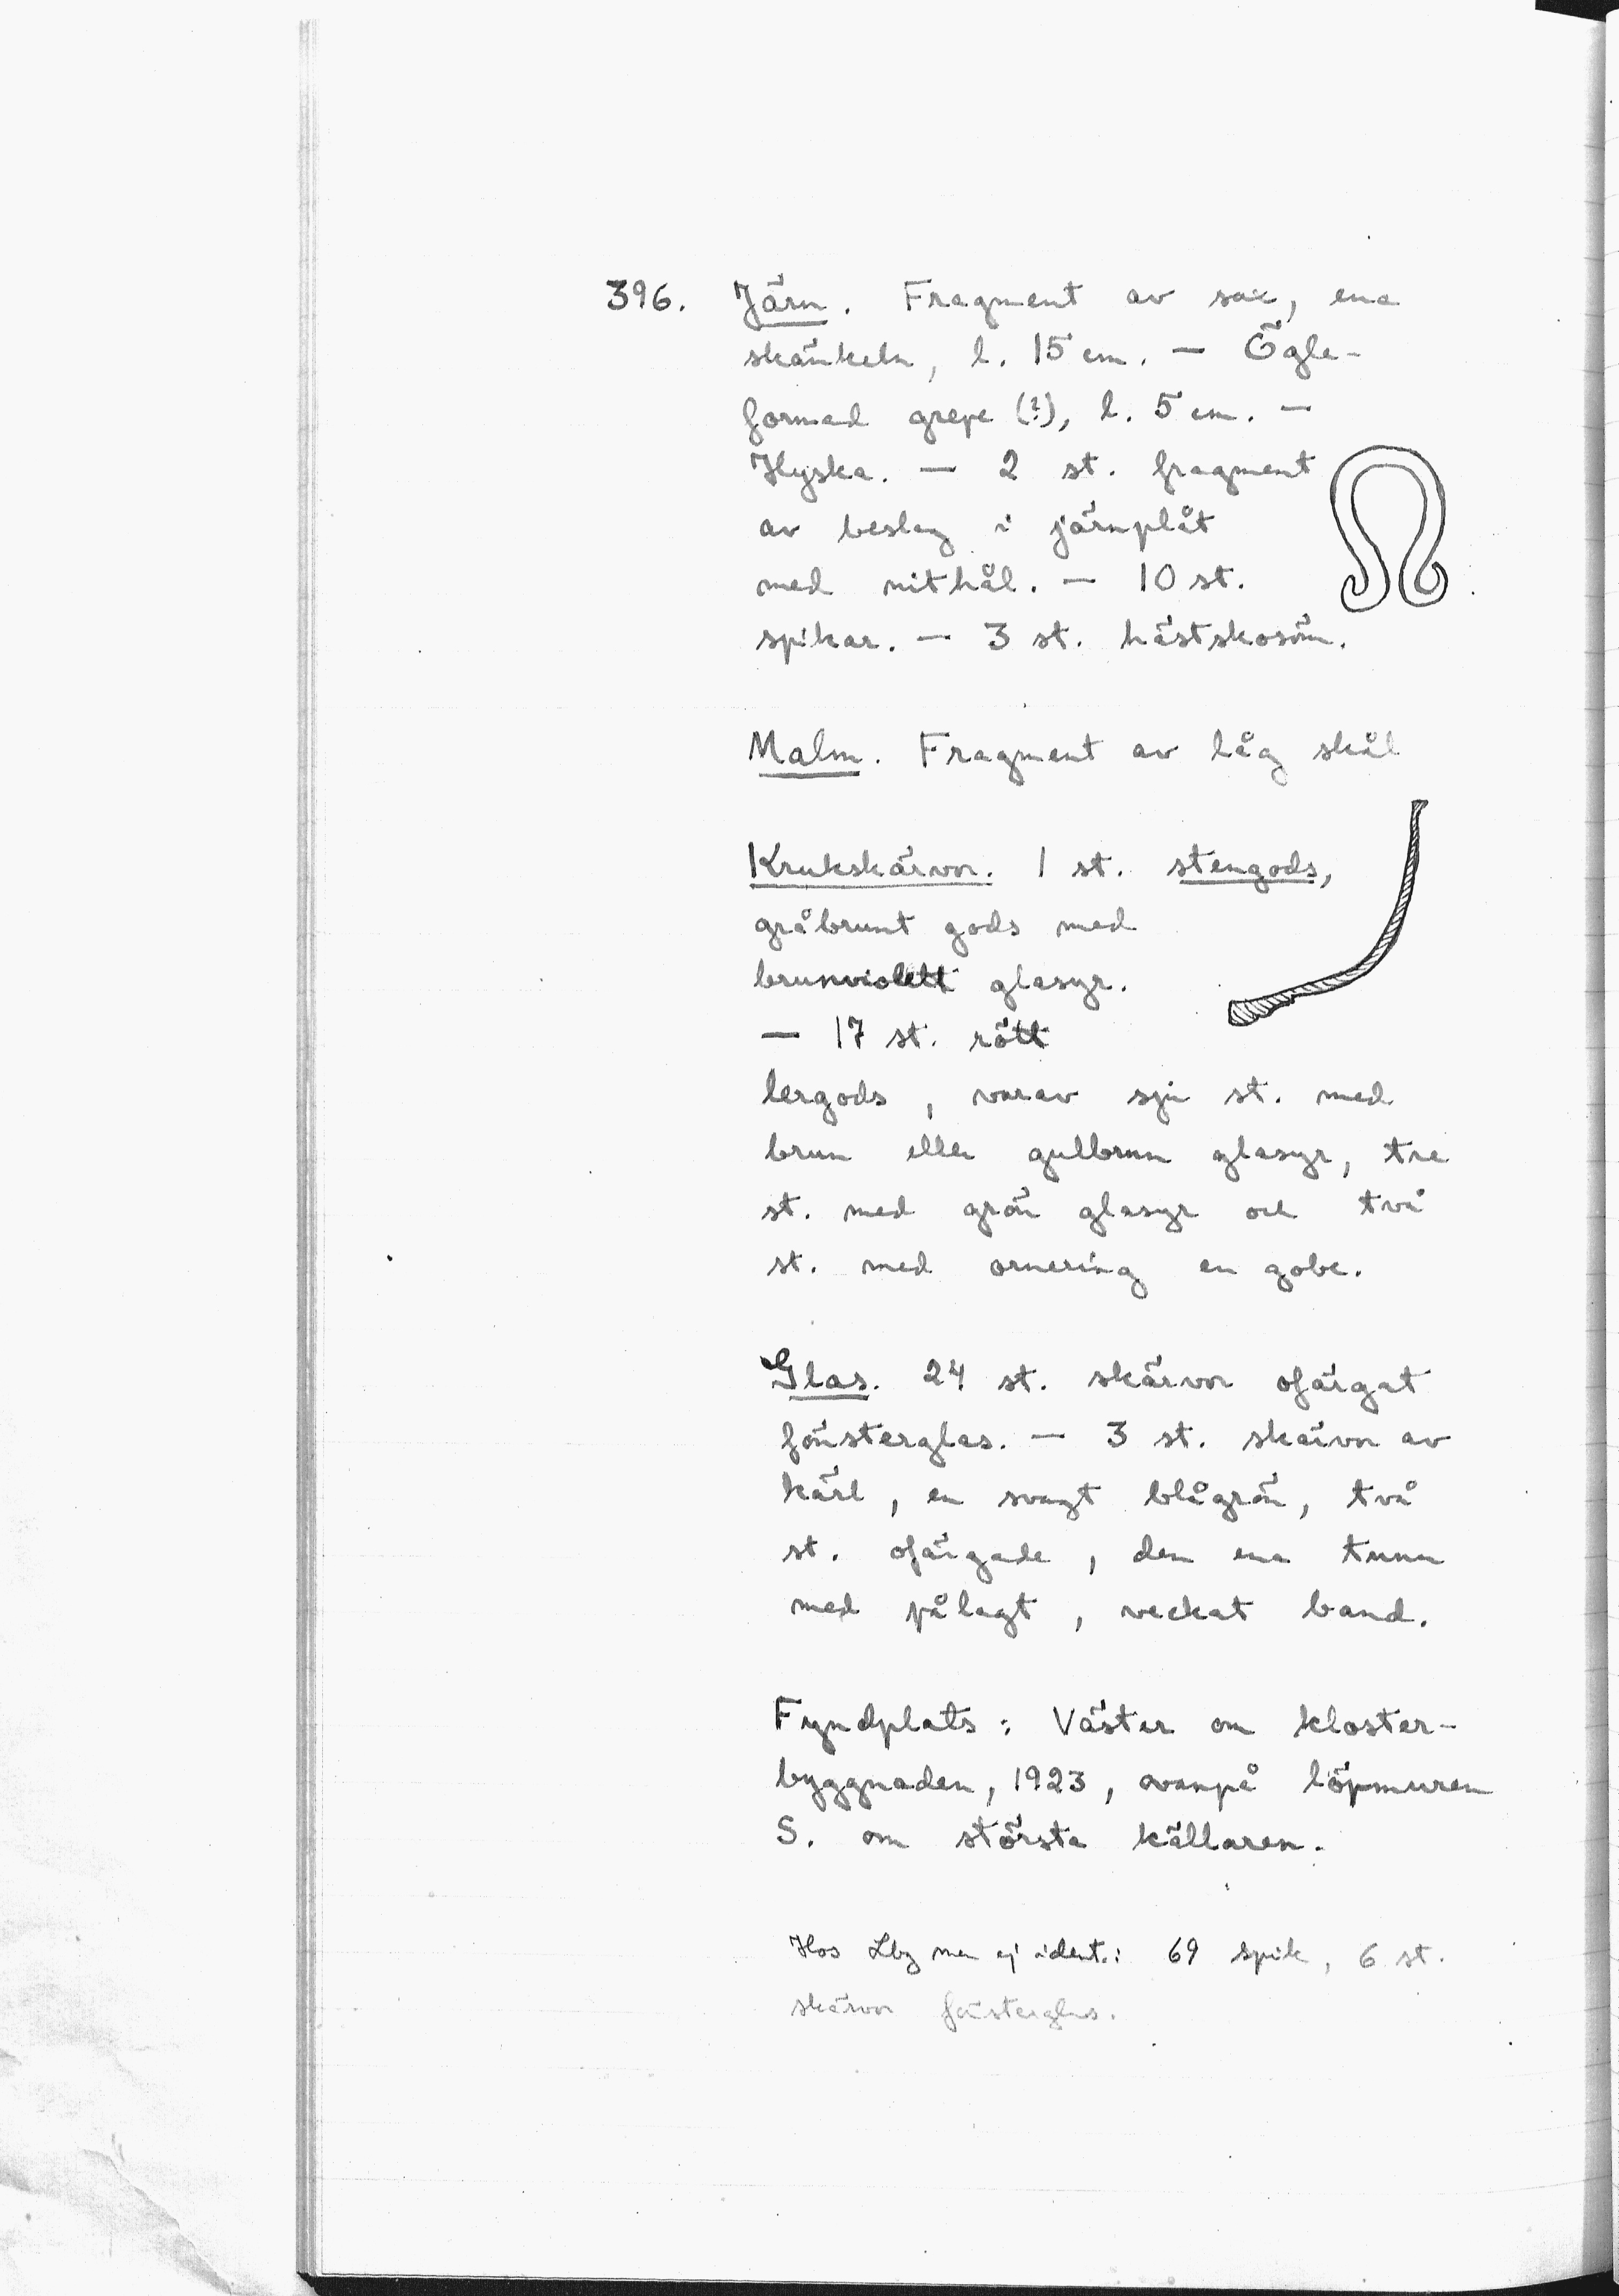 396. Järn. Fragment av sax, ena
skänkeln, l. 15 cm. — Ögle-
formad grepe (?), l. 5 cm. —
Hyska. — 2 st. fragment
av beslag i järnplåt
med nithål. — 10 st.
spikar. — 3 st. hästskosöm.
Malm. Fragment av låg skål
Krukskärvor. 1 st. stengods,
gråbrunt gods med
brunviolett glasyr.
— 17 st. rött
lergods, varav sju st. med
brun eller gulbrun glasyr, tre
st. med grön glasyr och två
st. med ornering en gobe.
Glas. 24 st. skärvor ofärgat
fönsterglas. — 3 st. skärvor av
kärl, en svagt blågrön, två
st. ofärgade, den ena tunn
med pålagt, veckat band.
Fyndplats: Väster om kloster-
byggnaden, 1923, ovanpå löpmuren
S. om största källaren.
Hos Lbg men ej ident.: 69 spik, 6 st.
skärvor fönsterglas.